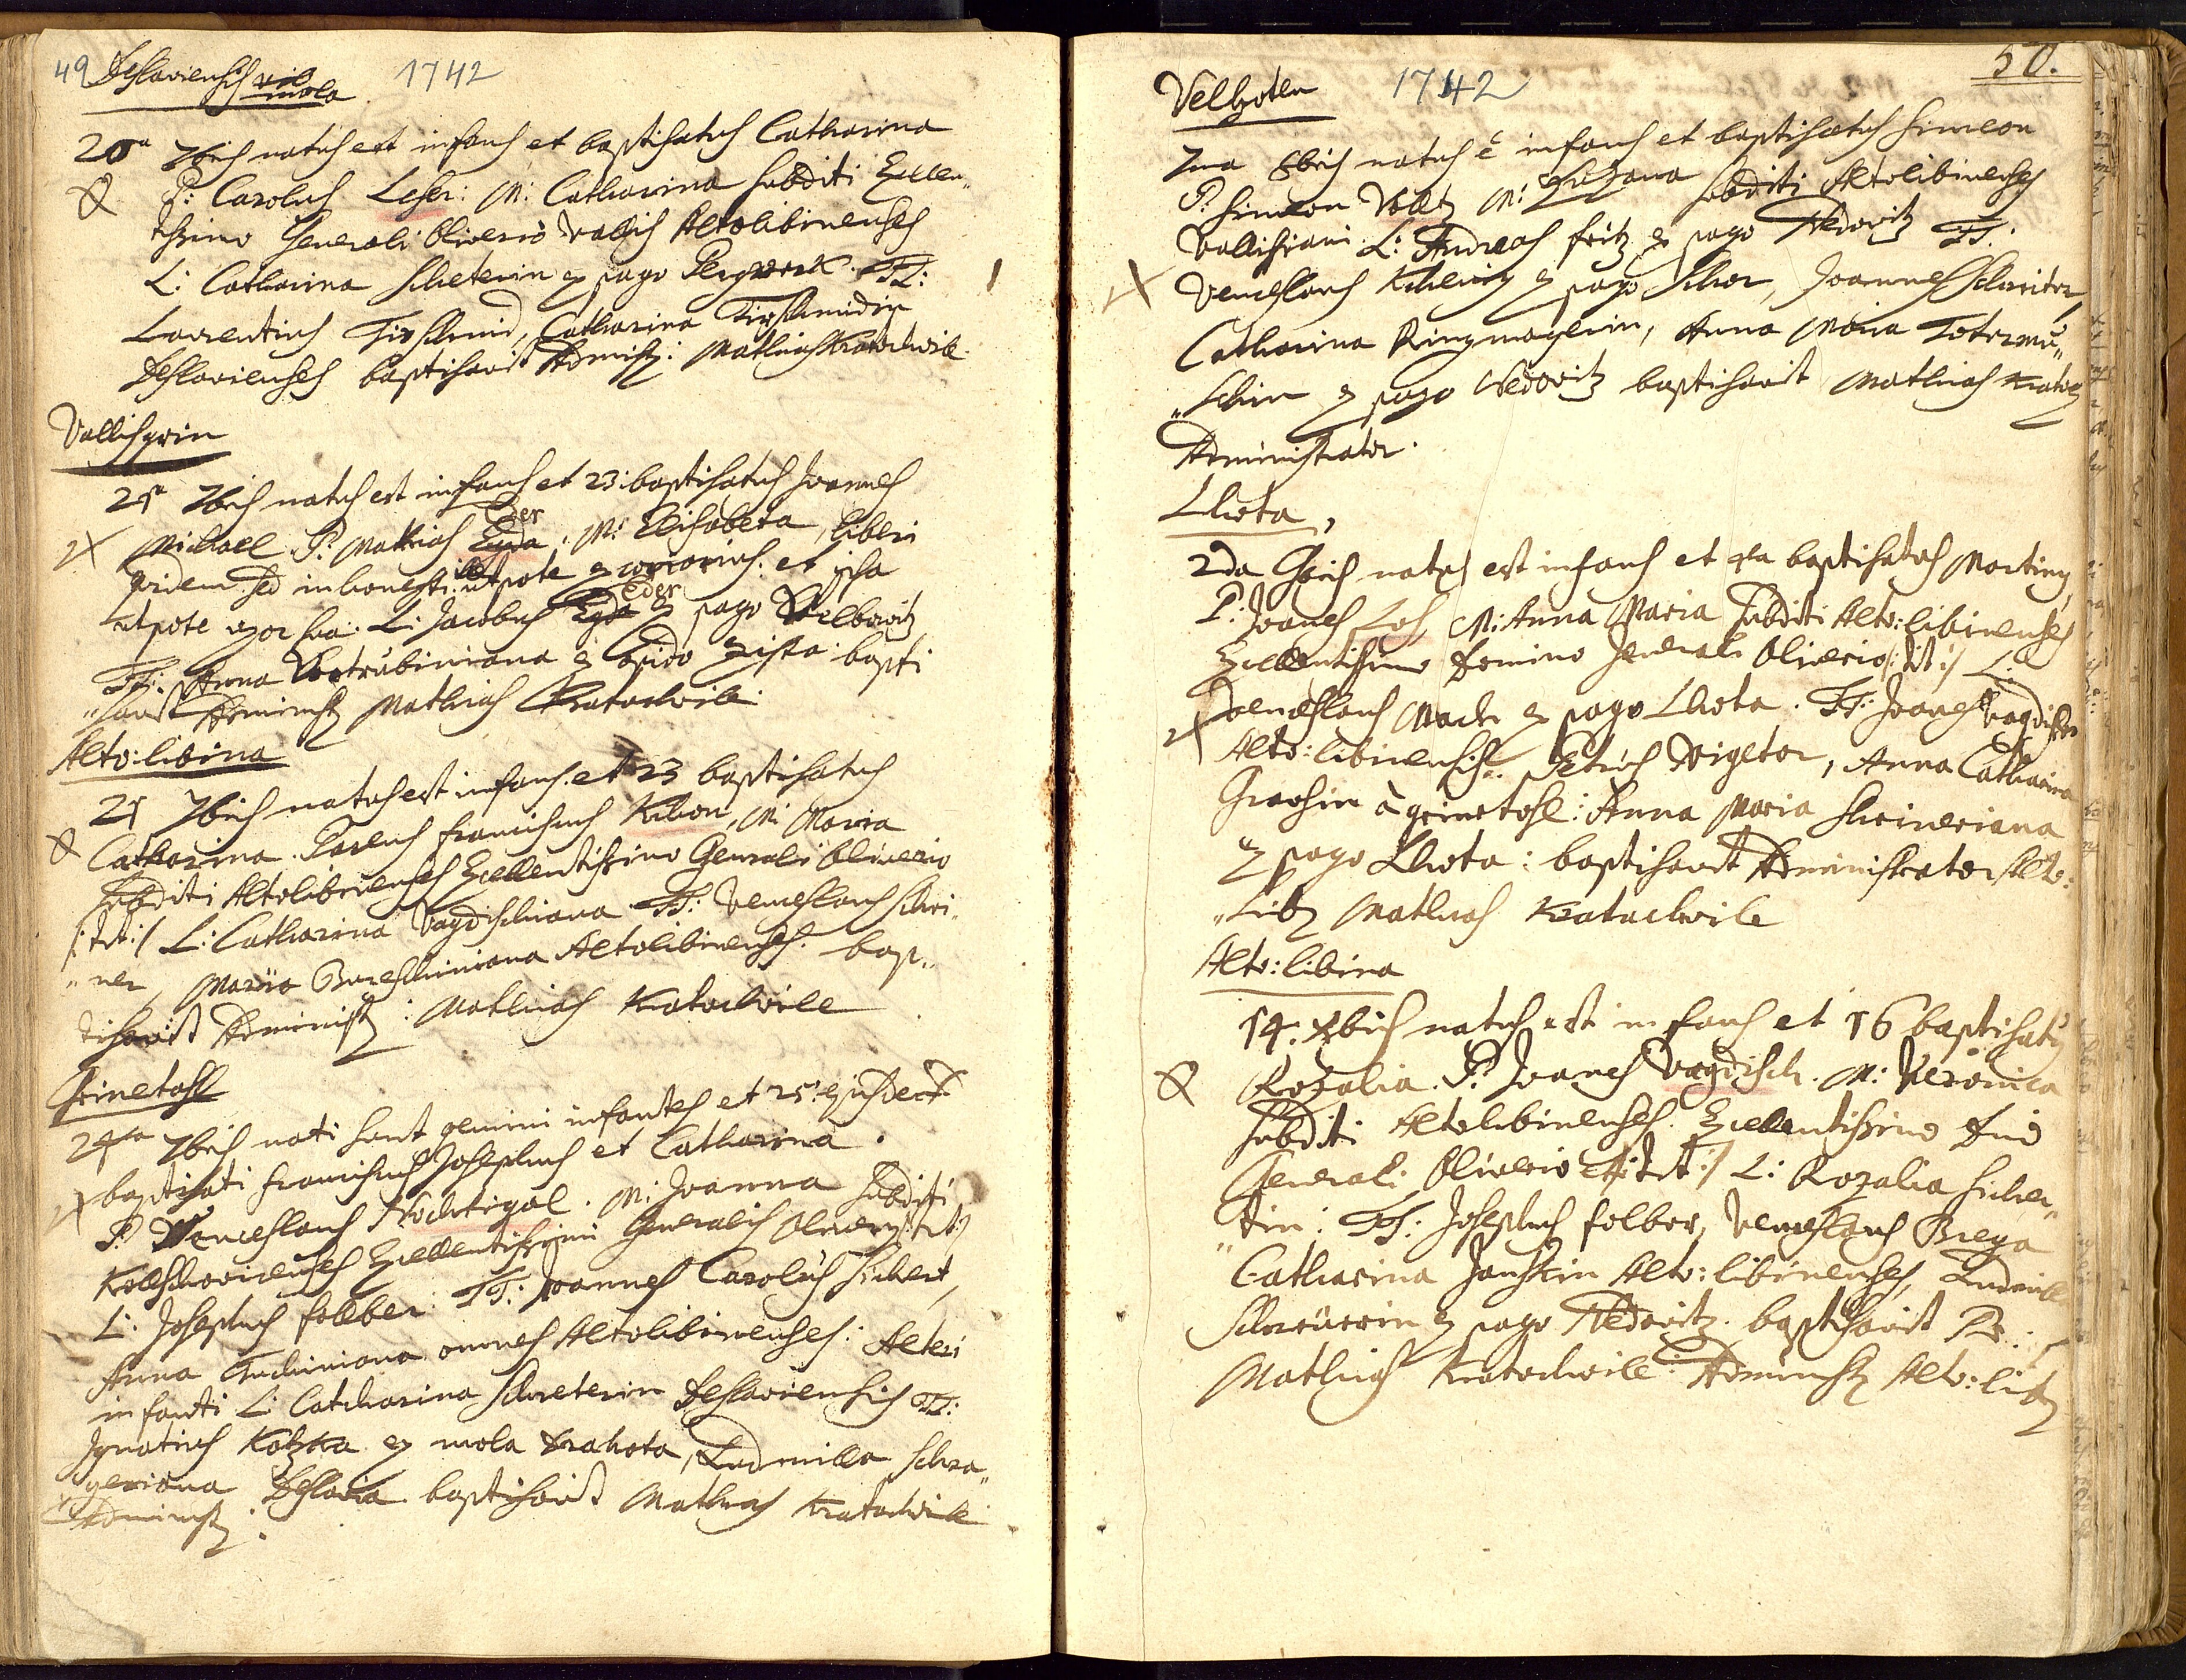 49 Deslaviensis mola 1742
20a 7bris natus est infans et baptisatus Catharina
P: Carolus Leser: M: Catharina subditi Excellen„
tissimo Generali Oliverio Vallis Altolibinenses
L: Catharina Schreterin ex pago Pergwerk. TT:
Laurentius Tirschmid, Catharina Tirschmidin
Deslavienses baptisavit Administ: Mathias Kratochwile
Vallisgrin
21a 7bris natus est infans et 23: baptisatus Joannes
Michael P: Mathias Eyda Eder M: Elisabeta, liberi
quidem sed inhonesti ille utpote ex coriariis: et ipsa
utpote uxor sua: L: Jacobus Eyda Eder ex pago Welbowitz
TT: Anna Wotrubiniana ex opido Zista bapti
„savit Administ Mathias Kratochwile
Alto: libina
21 7bris natus est infans et 23 baptisatus
Catharina. Parens Franciscus Kilion, M: Maria
subditi Altolibinenses Excellentissimo Generali Oliverio
/: tit :/ L: Catharina Vagdischiana TT: Venceslaus Schri„
„ner, Maria Bureschiniana Altolibinenses. bap„
tisavit Administ: Mathias Kratochwile
Grinetohl
24ta 7bris nati sunt gemini infantes et 25 ejusdem
baptisati Franciscus Josephus et Catharina.
P: Wenceslaus Nochtigal. M: Joanna subditi
Kolleschovicenses Excellentissimi Generalis Olivery /:tit:/
L: Josephus folber: TT: Joannes Carolus Sichert,
Anna Tuchiniana omnes Altolibinenses: Alteri
infanti L: Catharina Schreterin Deslaviensis TT:
Ignatius Kotzka ex mola Drahota, Ludmilla Schra„
„geriana Deslavia baptisavit Mathias Kratochwile
Administ:
50.
Velhoten 1742
7ma 8bris natus ē infans et baptisatus Simeon
P: Simeon Voltz M: Zuzana subditi Altolibinenses
Vallisiani: L: Andreas fritz ex pago Nedowitz TT:
Venceslaus ex pago Schor, Joannes Schreiter,
Catharina Ringmaylerin, Anna Maria Totermu„
„schin ex pago Nedowitz baptisavit Mathias Kratoch
Administrator.
Lhota,
2da 9bris natus est infans et 4ta baptisatus Martinus
P: Joanes Los, M: Anna Maria subditi Alto: libinenses
Excellentissimo Domino Generali Oliverio /: tit :/ L:
Venceslaus Mach ex pago Lhota. TT: Joanes Vagdisch
Alto: libinensis: Petrus Wigetor, Anna Catharina
Grossin à grinetohl: Anna Maria Schrineriana
ex pago Lhota: baptisavit Administrator Alto:
„Lib: Mathias Kratochwile
Alto: libina
14: Xbris natus est infans et 16 baptisatus
Rozalia. P: Joanes Vagdisch. M: Veronica
subditi Altolibinenses. Excellentissimo Dño
Generali Oliverio /: tit :/ L: Rozalia Sicher„
„tin: TT: Josephus folber, Venceslaus Brega
Catharina Janskin Alto: libinenses, Ludmila
Schreürerin ex pago Nedowitz. baptisavit Pr.:
Mathias Kratochwile: Administ Alto: lib